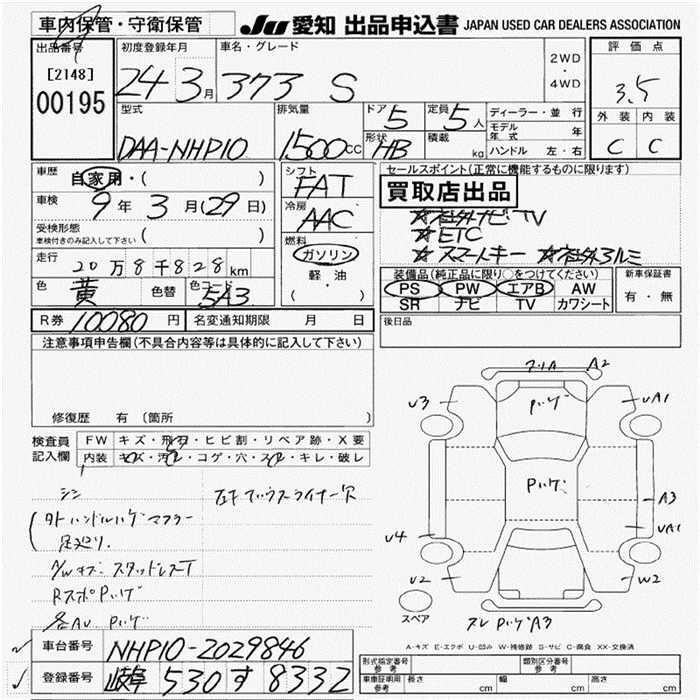 車内保管・守衛保管
JU 愛知 出品申込書 JAPAN USED CAR DEALERS ASSOCIATION
出品番号
[2148]
00195
初度登録年月
24 3月
車名・グレード
373 S
2WD
・
4WD
評価点
3.5
外装 内装
C C
型式
DAA-NHP10
排気量
1500cc
ドア 5
定員 5人
形状 HB
積載 kg
ディーラー・並行
モデル年式 年
ハンドル 左・右
車歴 自家用・( )
車検 9年 3月(29日)
受検形態
車検付きのみ記入して下さい ( )
走行 20万8千828km
色 黄 色替 色コード 5A3
シフト
FAT
冷房
AAC
燃料
ガソリン
軽・油
( )
セールスポイント(正常に機能するものに限ります)
買取店出品
☆社外ナビTV
☆ETC
☆スマートキー ☆社外アルミ
装備品(純正品に限り○をつけてください)
PS PW エアB AW
SR ナビ TV カワシート
新車保証書
有・無
R券 10080円 名変通知期限 月 日
後日品
注意事項申告欄(不具合内容等は具体的に記入して下さい)
修復歴 有(箇所 )
検査員
記入欄
FW キズ・飛石・ヒビ割・リペア跡・X要
内装 キズ・汚れ・コゲ・穴・スレ・キレ・破レ
シン
外ハンドルハゲ マフラー
足廻り.
A/Wキズ スタッドレスT
RスポPハゲ
各AU Pハゲ
A2
U3
Pハゲ
UA1
Pハゲ
A3
UA1
U4
U2
W2
スレPハゲA3
スペア
A-キズ E-エクボ U-凹み W-補修跡 S-サビ C-腐食 XX-交換済
車台番号 NHP10-2029846
登録番号 岐阜 530 す 8332
形式指定番号
参考
類別区分番号
参考
車庫証明用
参考
長さ cm 幅 cm 高さ cm